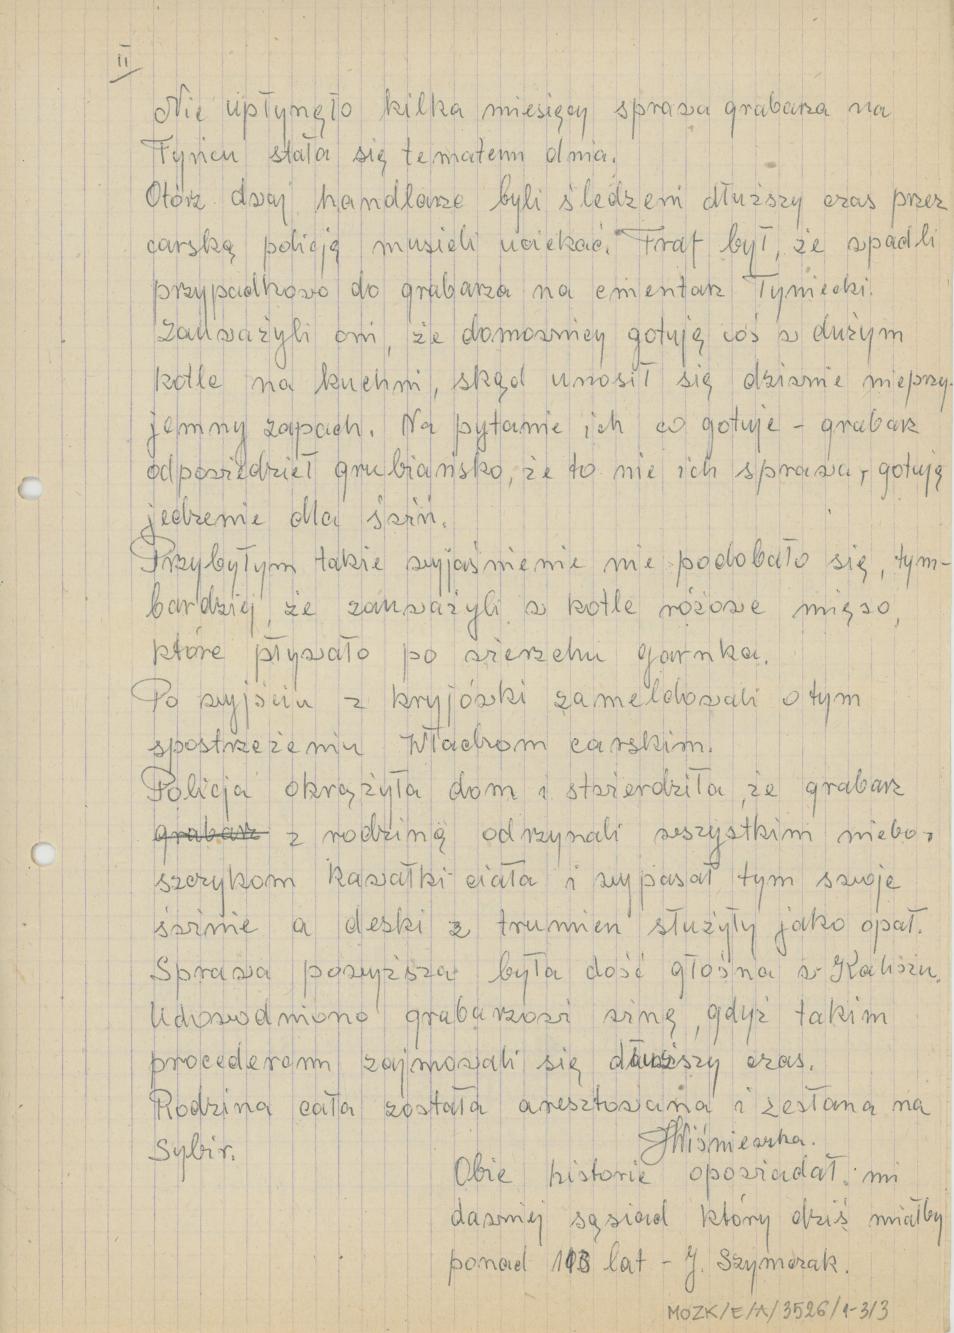 II
Nie upłynęło kilka miesięcy sprawa grabarza na
Tyńcu stała się tematem dnia.
Otórz dwaj handlarze byli śledzeni dłuższy czas przez
carską policją musieli uciekać. Traf był, że wpadli
przypadkowo do grabarza na cmentarz Tyniecki.
Zauważyli oni, że domownicy gotują coś w dużym
kotle na kuchni, skąd unosił się dziwnie nieprzy-
jemny zapach. Na pytanie ich co gotuje - grabarz
odpowiedział grubiańsko, że to nie ich sprawa, gotują
jedzenie dla świń.
Przybyłym takie wyjaśnienie nie podobało się, tym-
bardziej, że zauważyli w kotle różowe mięso,
które pływało po wierzchu garnka.
Po wyjściu z kryjówki zameldowali o tym
spostrzeżeniu władzom carskim.
Policja okrążyła dom i stwierdziła, że grabarz
grabarz z rodziną odrzynali wszystkim niebo-
szczykom kawałki ciała i wypasał tym swoje
świnie a deski z trumien służyły jako opał.
Sprawa powyższa była dość głośna w Kaliszu.
Udowodniono grabarzowi winę, gdyż takim
procederem zajmowali się dłuższy czas.
Rodzina cała została aresztowana i zesłana na
Sybir.
HWiśniewska.
Obie historie opowiadał mi
dawniej sąsiad który dziś miałby
ponad 113 lat - J. Szymczak.
MOZK/E/A/3526/1-3/3